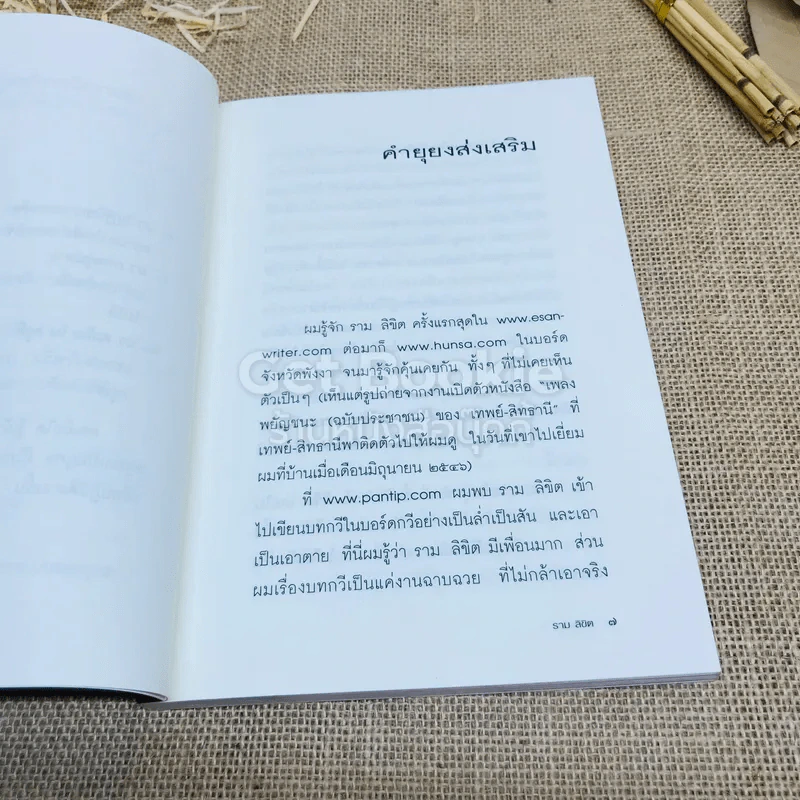 คำยุยงส่งเสริม
ผมรู้จัก ราม ลิขิต ครั้งแรกสุดใน www.esan-
writer.com ต่อมาก็ www.hunsa.com ในบอร์ด
จังหวัดพังงา จนมารู้จักคุ้นเคยกัน ทั้งๆ ที่ไม่เคยเห็น
ตัวเป็นๆ (เห็นแต่รูปถ่ายจากงานเปิดตัวหนังสือ "เพลง
พยัญชนะ (ฉบับประชาชน) ของ เทพย์-สิทธานี" ที่
เทพย์-สิทธานีพาติดตัวไปให้ผมดู ในวันที่เขาไปเยี่ยม
ผมที่บ้านเมื่อเดือนมิถุนายน ๒๕๔๖)
ที่ www.pantip.com ผมพบ ราม ลิขิต เข้า
ไปเขียนบทกวีในบอร์ดกวีอย่างเป็นล่ำเป็นสัน และเอา
เป็นเอาตาย ที่นี่ผมรู้ว่า ราม ลิขิต มีเพื่อนมาก ส่วน
ผมเรื่องบทกวีเป็นแค่งานฉาบฉวย ที่ไม่กล้าเอาจริง
ราม ลิขิต ๗
Get Bookie
ร้านหนังสือเก็ทบุ๊คกี้